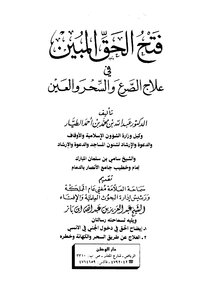 فتح الحق المبين
في
علاج الصرع والسحر والعين
تأليف
الدكتور عبدالله بن محمد بن أحمد الطيار
وكيل وزارة الشؤون الإسلامية والأوقاف
والدعوة والإرشاد لشئون المساجد والدعوة والإرشاد
والشيخ سامي بن سلمان المبارك
إمام وخطيب جامع الأنصار بالدمام
تقديم
سماحة العلامة مفتي عام المملكة
ورئيس إدارة البحوث العلمية والإفتاء
الشيخ عبد العزيز بن عبد الله بن باز
ويليه لسماحته رسالتان
١ـ إيضاح الحق في دخول الجني في الانسي
٢ـ العلاج عن طريق السحر والكهانة وخطره
دار الوطن
الرياض ـ شارع المعذر ـ ص. ب ٣٣١٠